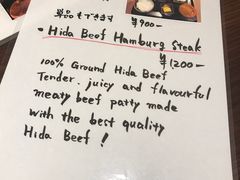 単品もできます ¥900-
• Hida Beef Hamburg Steak
¥1200-
100% Ground Hida Beef
Tender. juicy and flavourful
meaty beef party made
with the best quality
Hida Beef !